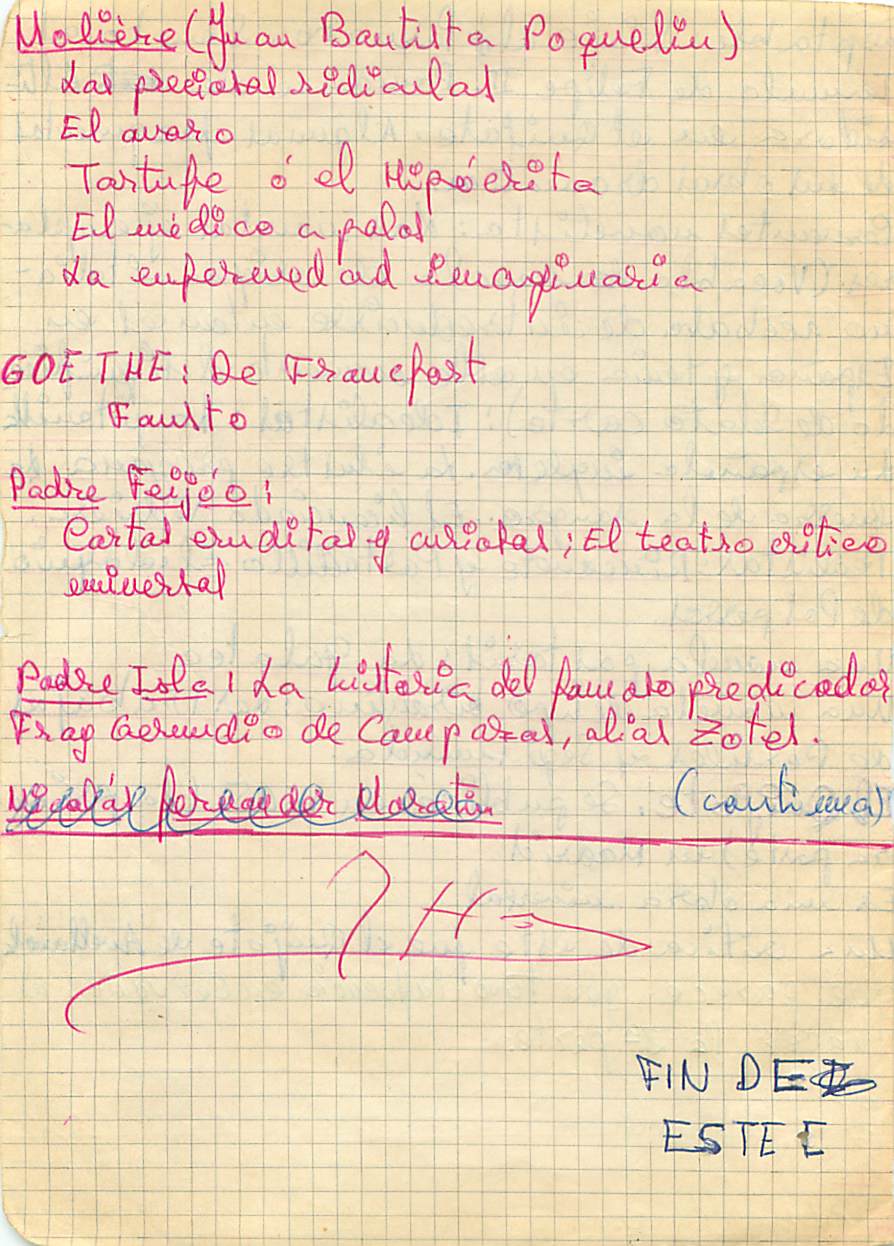 Molière (Juan Bautista Poquelin)
Las preciosas ridiculas
El avaro
Tartufe ó el Hipócrita
El médico a palos
La enfermedad imaginaria
GOETHE: De Francfort
Fausto
Padre Feijóo:
Cartas eruditas y curiosas; El teatro crítico
universal
Padre Isla: La historia del famoso predicador
Fray Gerundio de Campazas, alias Zotes.
Nicolás Fernander Moratin (continua)
FIN DE
ESTE